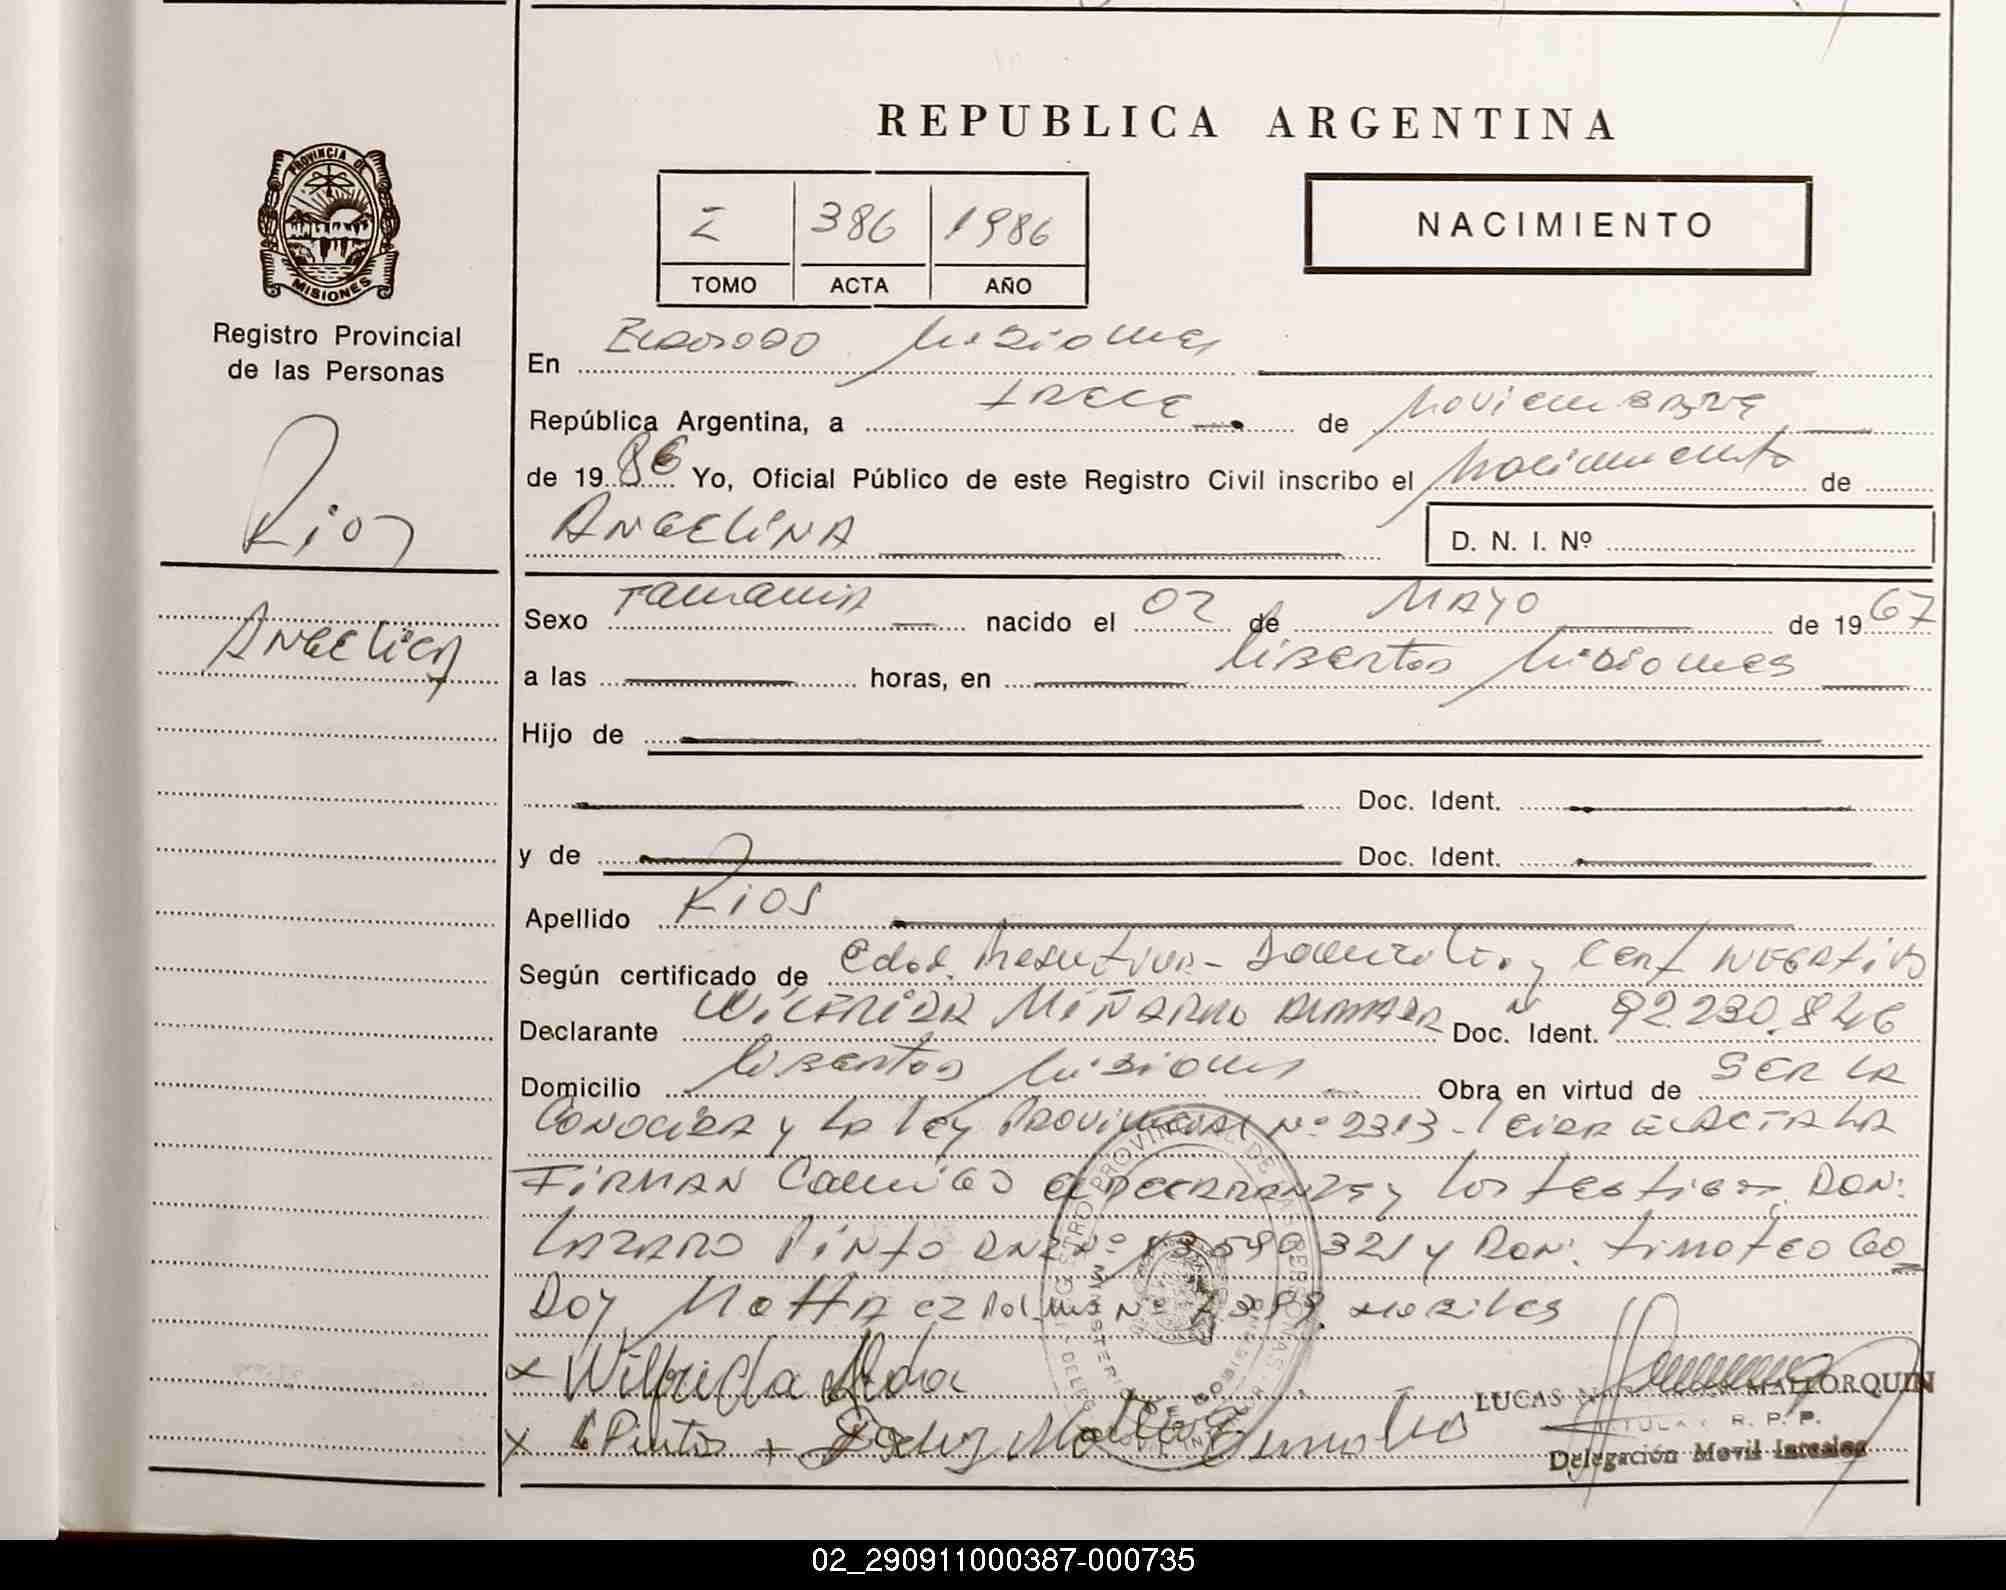 REPUBLICA ARGENTINA
PROVINCIA DE MISIONES
Registro Provincial de las Personas
I 386 1986
TOMO ACTA AÑO
NACIMIENTO
Rios
Angelica
En Eldorado Misiones
República Argentina, a trece de Noviembre
de 1986 Yo, Oficial Público de este Registro Civil inscribo el Nacimiento de
ANGELINA
D. N. I. Nº
Sexo nacido el 02 de MAYO de 1967
a las horas, en Libertad Misiones
Hijo de
Doc. Ident.
y de Doc. Ident.
Apellido Rios
Según certificado de Edad y Cert Negativo
Declarante WILFRIDA Doc. Ident. Nº 92.230.846
Domicilio Libertad Misiones Obra en virtud de SER LA
CONOCIDA y LA ley PROVINCIAL Nº 2313 - leida el ACTA LA
FIRMAN Conmigo y los testigos DON:
LAZARO PINTO DNI Nº y DON: timoteo Go
Doy MOTTA Nº
x Wilfrida
x L Pinto x Motta
LUCAS MALLORQUIN
TITULAR R. P. P.
Delegación Movil
02_290911000387-000735